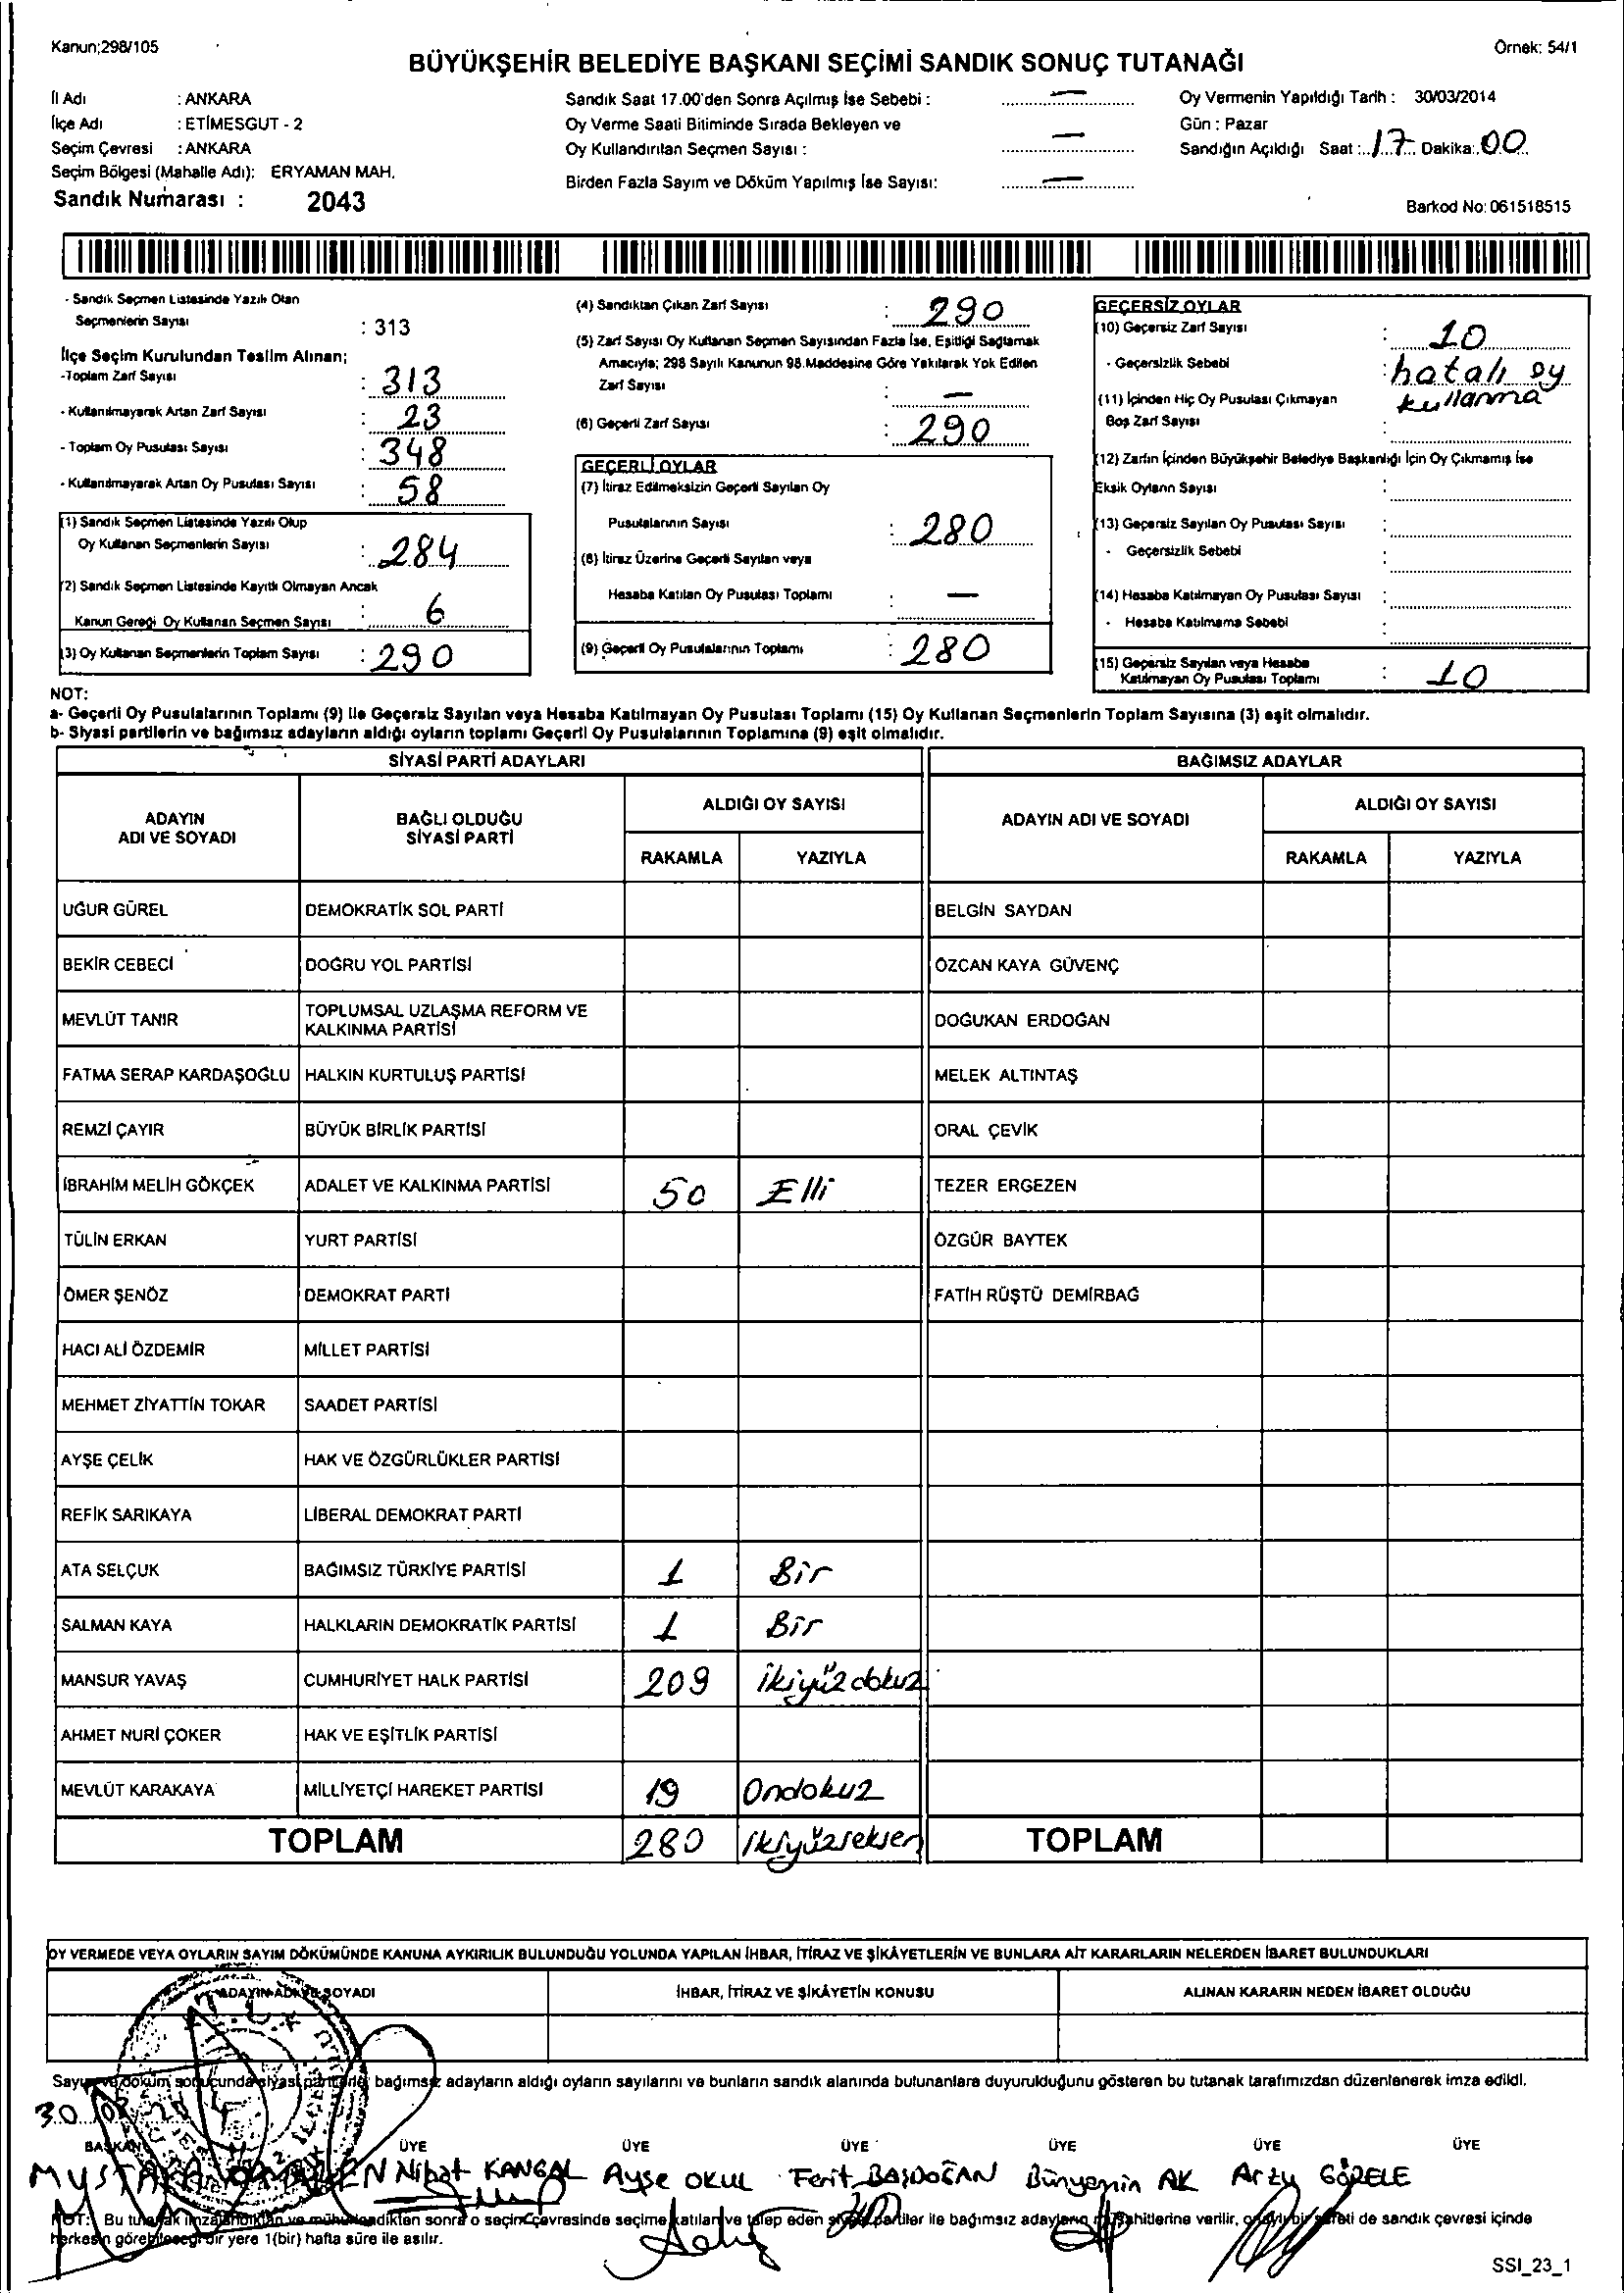 Kanun;298/105
Örnek: 54/1
BÜYÜKŞEHİR BELEDİYE BAŞKANI SEÇİMİ SANDIK SONUÇ TUTANAĞI
İl Adı : ANKARA
İlçe Adı : ETİMESGUT - 2
Seçim Çevresi : ANKARA
Seçim Bölgesi (Mahalle Adı): ERYAMAN MAH.
Sandık Numarası : 2043
Sandık Saat 17.00'den Sonra Açılmış İse Sebebi : —
Oy Verme Saati Bitiminde Sırada Bekleyen ve
Oy Kullandırılan Seçmen Sayısı : —
Birden Fazla Sayım ve Döküm Yapılmış İse Sayısı: —
Oy Vermenin Yapıldığı Tarih : 30/03/2014
Gün : Pazar
Sandığın Açıldığı Saat : 17 Dakika: 00
Barkod No: 061518515
- Sandık Seçmen Listesinde Yazılı Olan
Seçmenlerin Sayısı : 313
İlçe Seçim Kurulundan Teslim Alınan;
-Toplam Zarf Sayısı : 313
- Kullanılmayarak Artan Zarf Sayısı : 23
- Toplam Oy Pusulası Sayısı : 348
- Kullanılmayarak Artan Oy Pusulası Sayısı : 58
(1) Sandık Seçmen Listesinde Yazılı Olup
Oy Kullanan Seçmenlerin Sayısı : 284
(2) Sandık Seçmen Listesinde Kayıtlı Olmayan Ancak
Kanun Gereği Oy Kullanan Seçmen Sayısı : 6
(3) Oy Kullanan Seçmenlerin Toplam Sayısı : 290
(4) Sandıktan Çıkan Zarf Sayısı : 290
(5) Zarf Sayısı Oy Kullanan Seçmen Sayısından Fazla İse, Eşitliği Sağlamak
Amacıyla; 298 Sayılı Kanunun 98.Maddesine Göre Yakılarak Yok Edilen
Zarf Sayısı : —
(6) Geçerli Zarf Sayısı : 290
GEÇERLİ OYLAR
(7) İtiraz Edilmeksizin Geçerli Sayılan Oy
Pusulalarının Sayısı : 280
(8) İtiraz Üzerine Geçerli Sayılan veya
Hesaba Katılan Oy Pusulası Toplamı : —
(9) Geçerli Oy Pusulalarının Toplamı : 280
GEÇERSİZ OYLAR
(10) Geçersiz Zarf Sayısı : 10
- Geçersizlik Sebebi : hatalı oy
kullanma
(11) İçinden Hiç Oy Pusulası Çıkmayan
Boş Zarf Sayısı :
(12) Zarfın İçinden Büyükşehir Belediye Başkanlığı İçin Oy Çıkmamış İse
Eksik Oyların Sayısı :
(13) Geçersiz Sayılan Oy Pusulası Sayısı :
- Geçersizlik Sebebi :
(14) Hesaba Katılmayan Oy Pusulası Sayısı :
- Hesaba Katılmama Sebebi :
(15) Geçersiz Sayılan veya Hesaba
Katılmayan Oy Pusulası Toplamı : 10
NOT:
a- Geçerli Oy Pusulalarının Toplamı (9) ile Geçersiz Sayılan veya Hesaba Katılmayan Oy Pusulası Toplamı (15) Oy Kullanan Seçmenlerin Toplam Sayısına (3) eşit olmalıdır.
b- Siyasi partilerin ve bağımsız adayların aldığı oyların toplamı Geçerli Oy Pusulalarının Toplamına (9) eşit olmalıdır.
SİYASİ PARTİ ADAYLARI
BAĞIMSIZ ADAYLAR
ADAYIN
ADI VE SOYADI
BAĞLI OLDUĞU
SİYASİ PARTİ
ALDIĞI OY SAYISI
RAKAMLA YAZIYLA
ADAYIN ADI VE SOYADI
ALDIĞI OY SAYISI
RAKAMLA YAZIYLA
UĞUR GÜREL DEMOKRATİK SOL PARTİ BELGİN SAYDAN
BEKİR CEBECİ DOĞRU YOL PARTİSİ ÖZCAN KAYA GÜVENÇ
MEVLÜT TANIR TOPLUMSAL UZLAŞMA REFORM VE
KALKINMA PARTİSİ DOĞUKAN ERDOĞAN
FATMA SERAP KARDAŞOĞLU HALKIN KURTULUŞ PARTİSİ MELEK ALTINTAŞ
REMZİ ÇAYIR BÜYÜK BİRLİK PARTİSİ ORAL ÇEVİK
İBRAHİM MELİH GÖKÇEK ADALET VE KALKINMA PARTİSİ 50 Elli TEZER ERGEZEN
TÜLİN ERKAN YURT PARTİSİ ÖZGÜR BAYTEK
ÖMER ŞENÖZ DEMOKRAT PARTİ FATİH RÜŞTÜ DEMİRBAĞ
HACI ALİ ÖZDEMİR MİLLET PARTİSİ
MEHMET ZİYATTİN TOKAR SAADET PARTİSİ
AYŞE ÇELİK HAK VE ÖZGÜRLÜKLER PARTİSİ
REFİK SARIKAYA LİBERAL DEMOKRAT PARTİ
ATA SELÇUK BAĞIMSIZ TÜRKİYE PARTİSİ 1 Bir
SALMAN KAYA HALKLARIN DEMOKRATİK PARTİSİ 1 Bir
MANSUR YAVAŞ CUMHURİYET HALK PARTİSİ 209 ikiyüzdokuz
AHMET NURİ ÇOKER HAK VE EŞİTLİK PARTİSİ
MEVLÜT KARAKAYA MİLLİYETÇİ HAREKET PARTİSİ 19 Ondokuz
TOPLAM 280 ikiyüzseksen TOPLAM
OY VERMEDE VEYA OYLARIN SAYIM DÖKÜMÜNDE KANUNA AYKIRILIK BULUNDUĞU YOLUNDA YAPILAN İHBAR, İTİRAZ VE ŞİKÂYETLERİN VE BUNLARA AİT KARARLARIN NELERDEN İBARET BULUNDUKLARI
ADAYIN ADI VE SOYADI İHBAR, İTİRAZ VE ŞİKÂYETİN KONUSU ALINAN KARARIN NEDEN İBARET OLDUĞU
Sayım ve döküm sonucunda siyasi partilerle bağımsız adayların aldığı oyların sayılarını ve bunların sandık alanında bulunanlara duyurulduğunu gösteren bu tutanak tarafımızdan düzenlenerek imza edildi.
30
BAŞKAN ÜYE ÜYE ÜYE ÜYE ÜYE ÜYE
MUSTAFA Nihat KANGAL Ayşe OKUL Ferit BAŞDOĞAN Bünyamin AK Arzu GÖRELE
NOT: Bu tutanak imzalandıktan ve mühürlendikten sonra o seçim çevresinde seçime katılan ve talep eden siyasi partiler ile bağımsız adayların müşahitlerine verilir, onaylı bir sureti de sandık çevresi içinde
herkesin görebileceği bir yere 1(bir) hafta süre ile asılır.
SSI_23_1